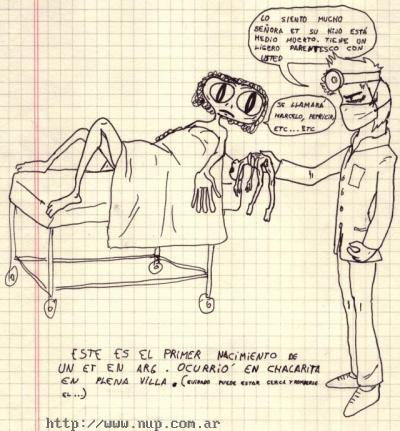 LO SIENTO MUCHO
SEÑORA ET SU HIJO ESTÁ
MEDIO MUERTO. TIENE UN
LIGERO PARENTESCO CON
USTED
SE LLAMARÁ
MARCELO, PATRICIO,
ETC... ETC
ESTE ES EL PRIMER NACIMIENTO DE
UN ET EN ARG. OCURRIÓ EN CHACARITA
EN PLENA VILLA. (CUIDADO PUEDE ESTAR CERCA Y ROMPERSE
EL...)
http://www.nup.com.ar